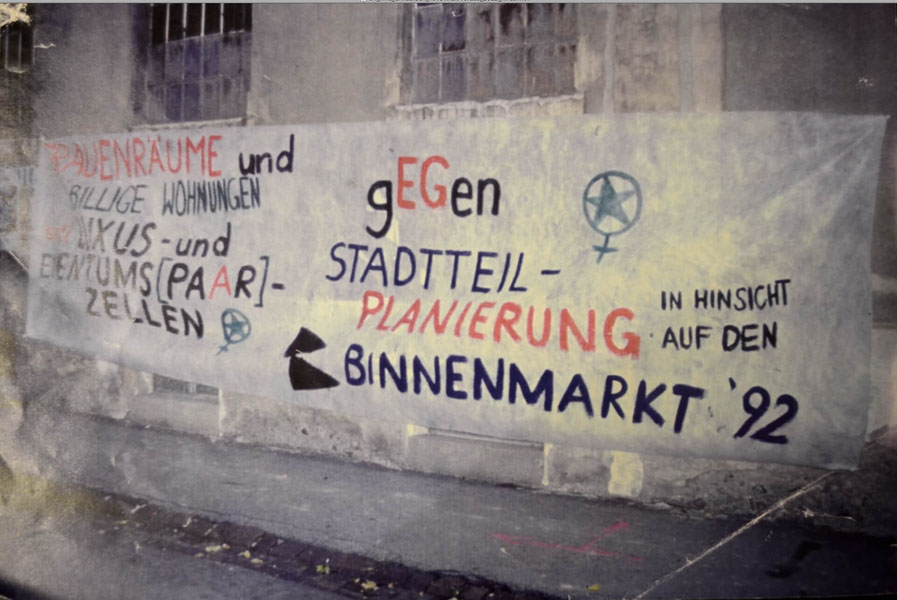 FRAUENRÄUME und
BILLIGE WOHNUNGEN
LUXUS-und
EIGENTUMS[PAAR]-
ZELLEN
gEGen
STADTTEIL-
PLANIERUNG
IN HINSICHT
AUF DEN
BINNENMARKT '92